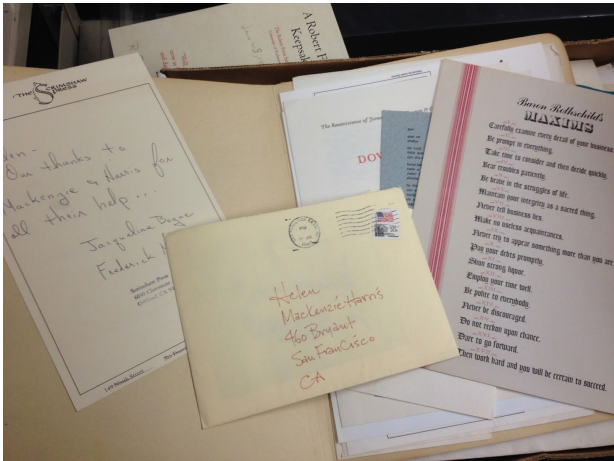 A Robert F
Keepsak
THE SCRIMSHAW
PRESS
en-
Our thanks to
Mackenzie & Harris for
all their help...
Jacqueline
Frederick
Scrimshaw Press
149 Ninth Street
The Reminiscence of
DOV
Helen
Mackenzie-Harris
460 Bryant
San Francisco
CA
Baron Rothschild's
MAXIMS
Carefully examine every detail of your business
Be prompt in everything.
Take time to consider and then decide quickly.
Bear troubles patiently.
Be brave in the struggles of life.
Maintain your integrity as a sacred thing.
Never tell business lies.
Make no useless acquaintances.
Never try to appear something more than you are.
Pay your debts promptly.
Shun strong liquor.
Employ your time well.
Be polite to everybody.
Never be discouraged.
Do not reckon upon chance.
Dare to go forward.
Then work hard and you will be certain to succeed.